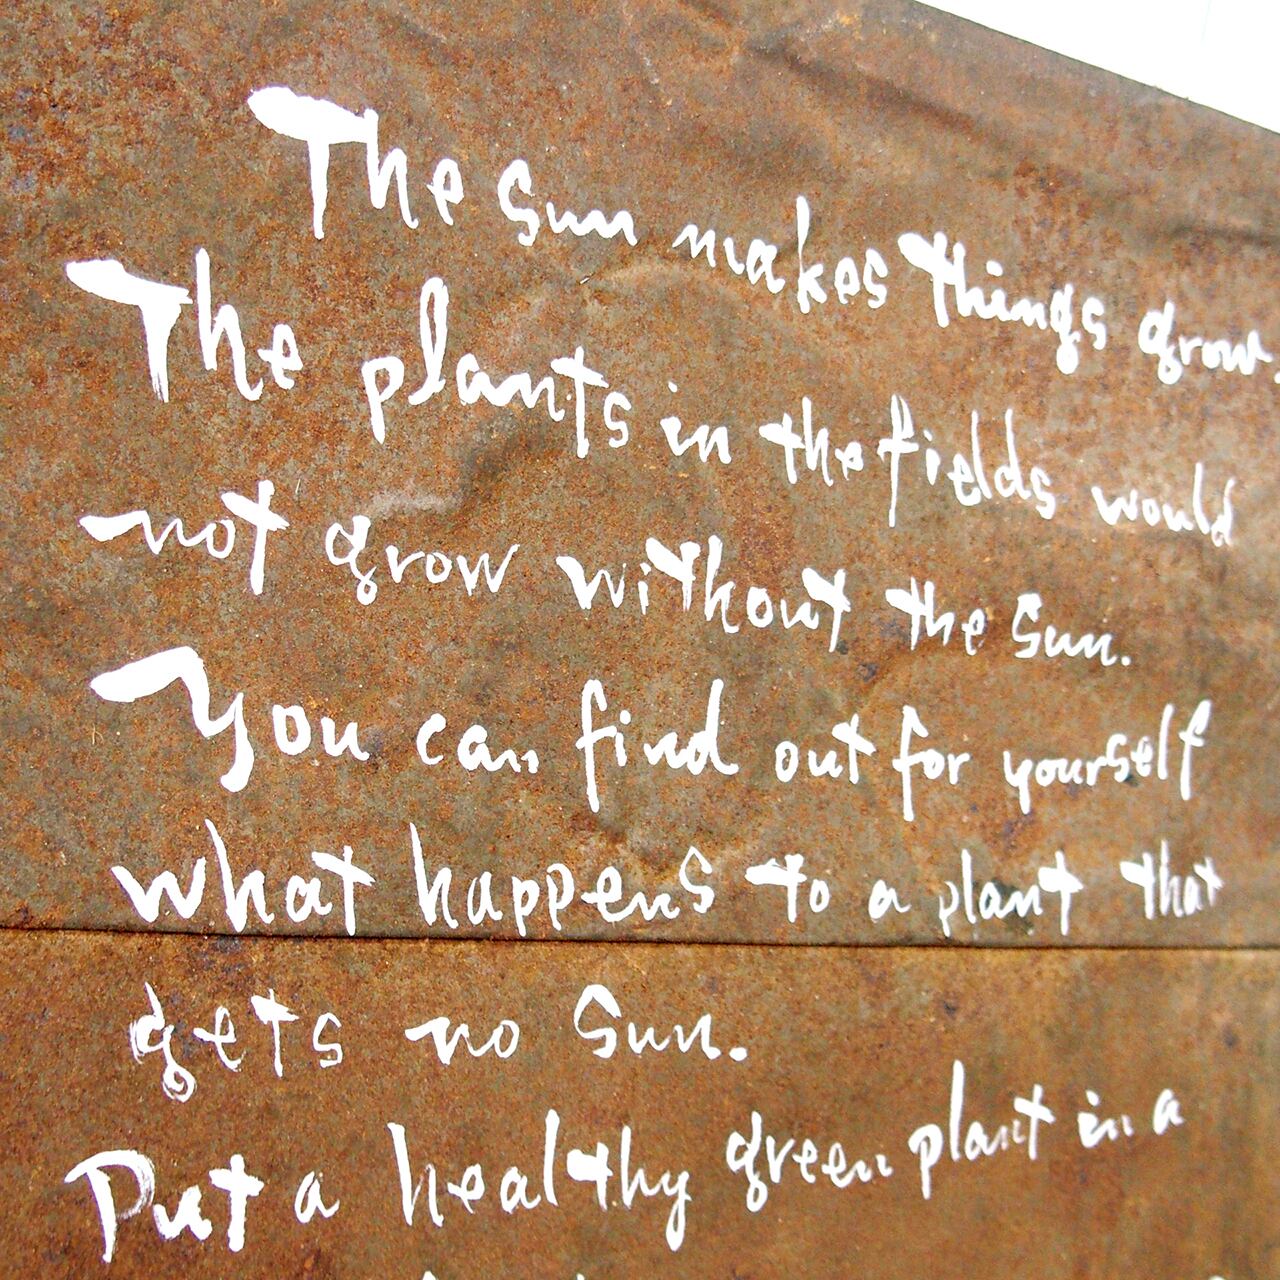 The Sun makes things grow.
The plants in the fields would
not grow without the Sun.
You can find out for yourself
what happens to a plant that
gets no Sun.
Put a healthy green plant in a